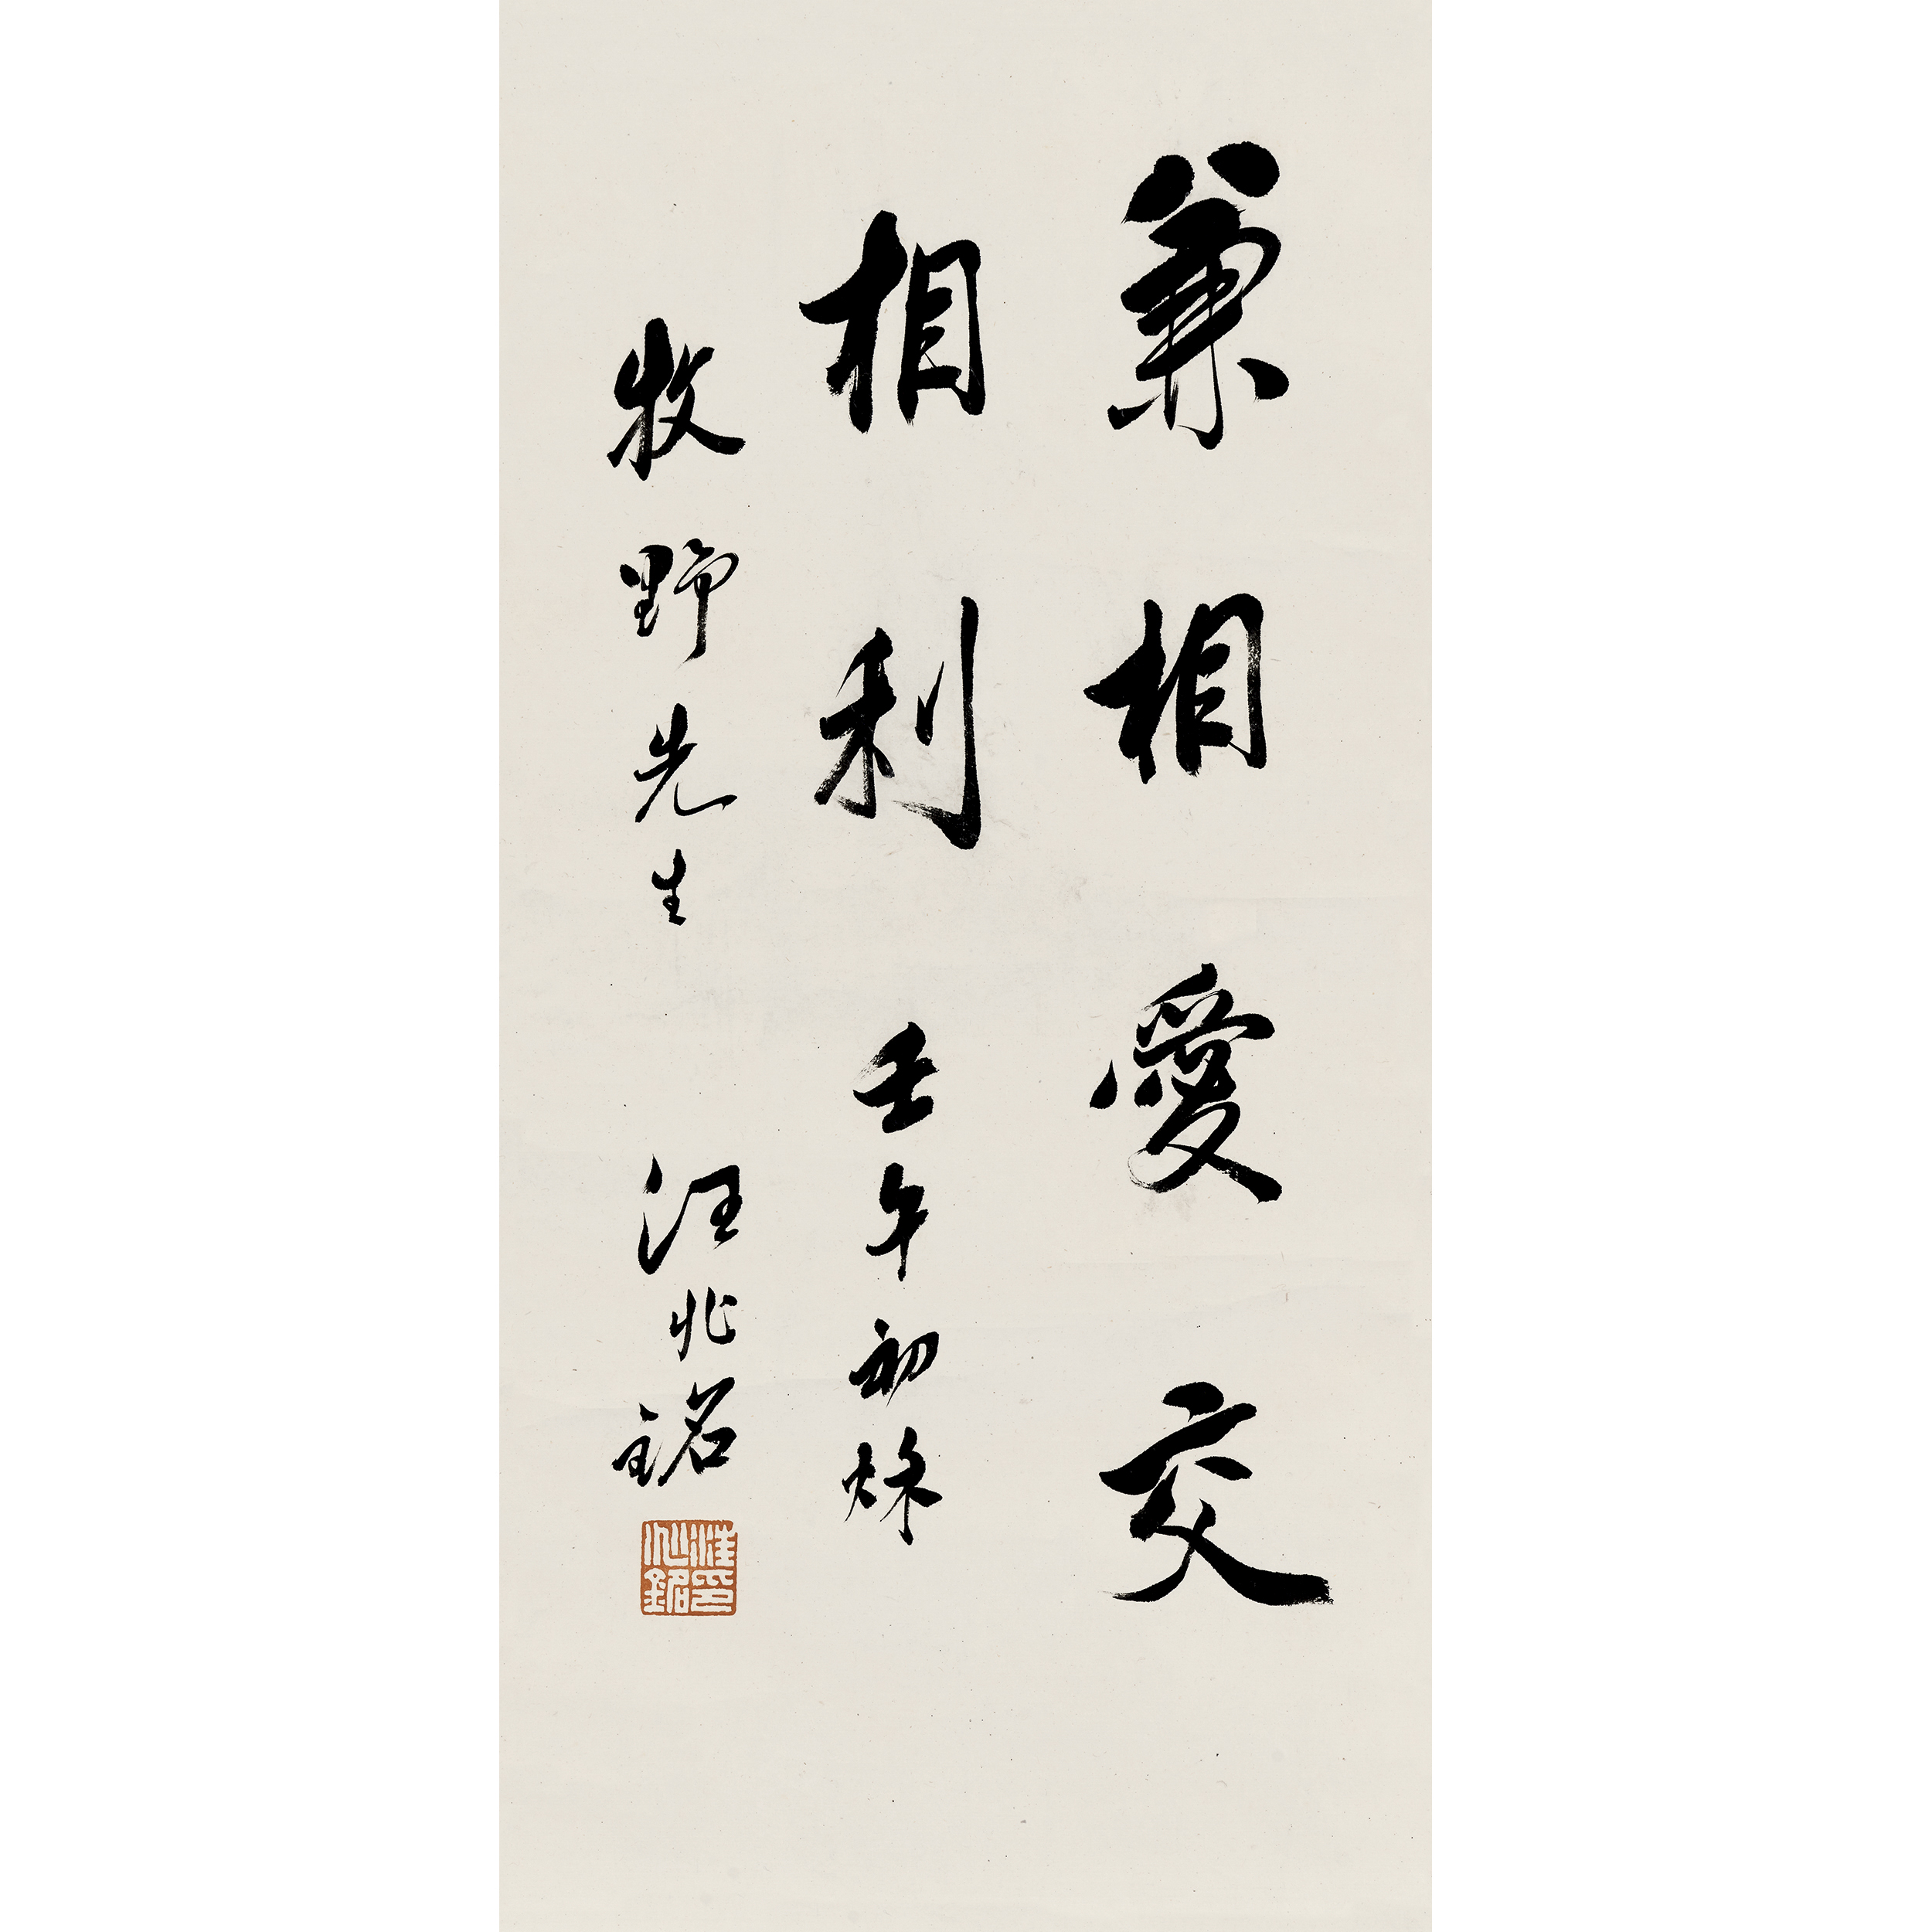 兼相愛交
相利 壬午初秌
牧野先生 汪兆銘
汪印兆銘